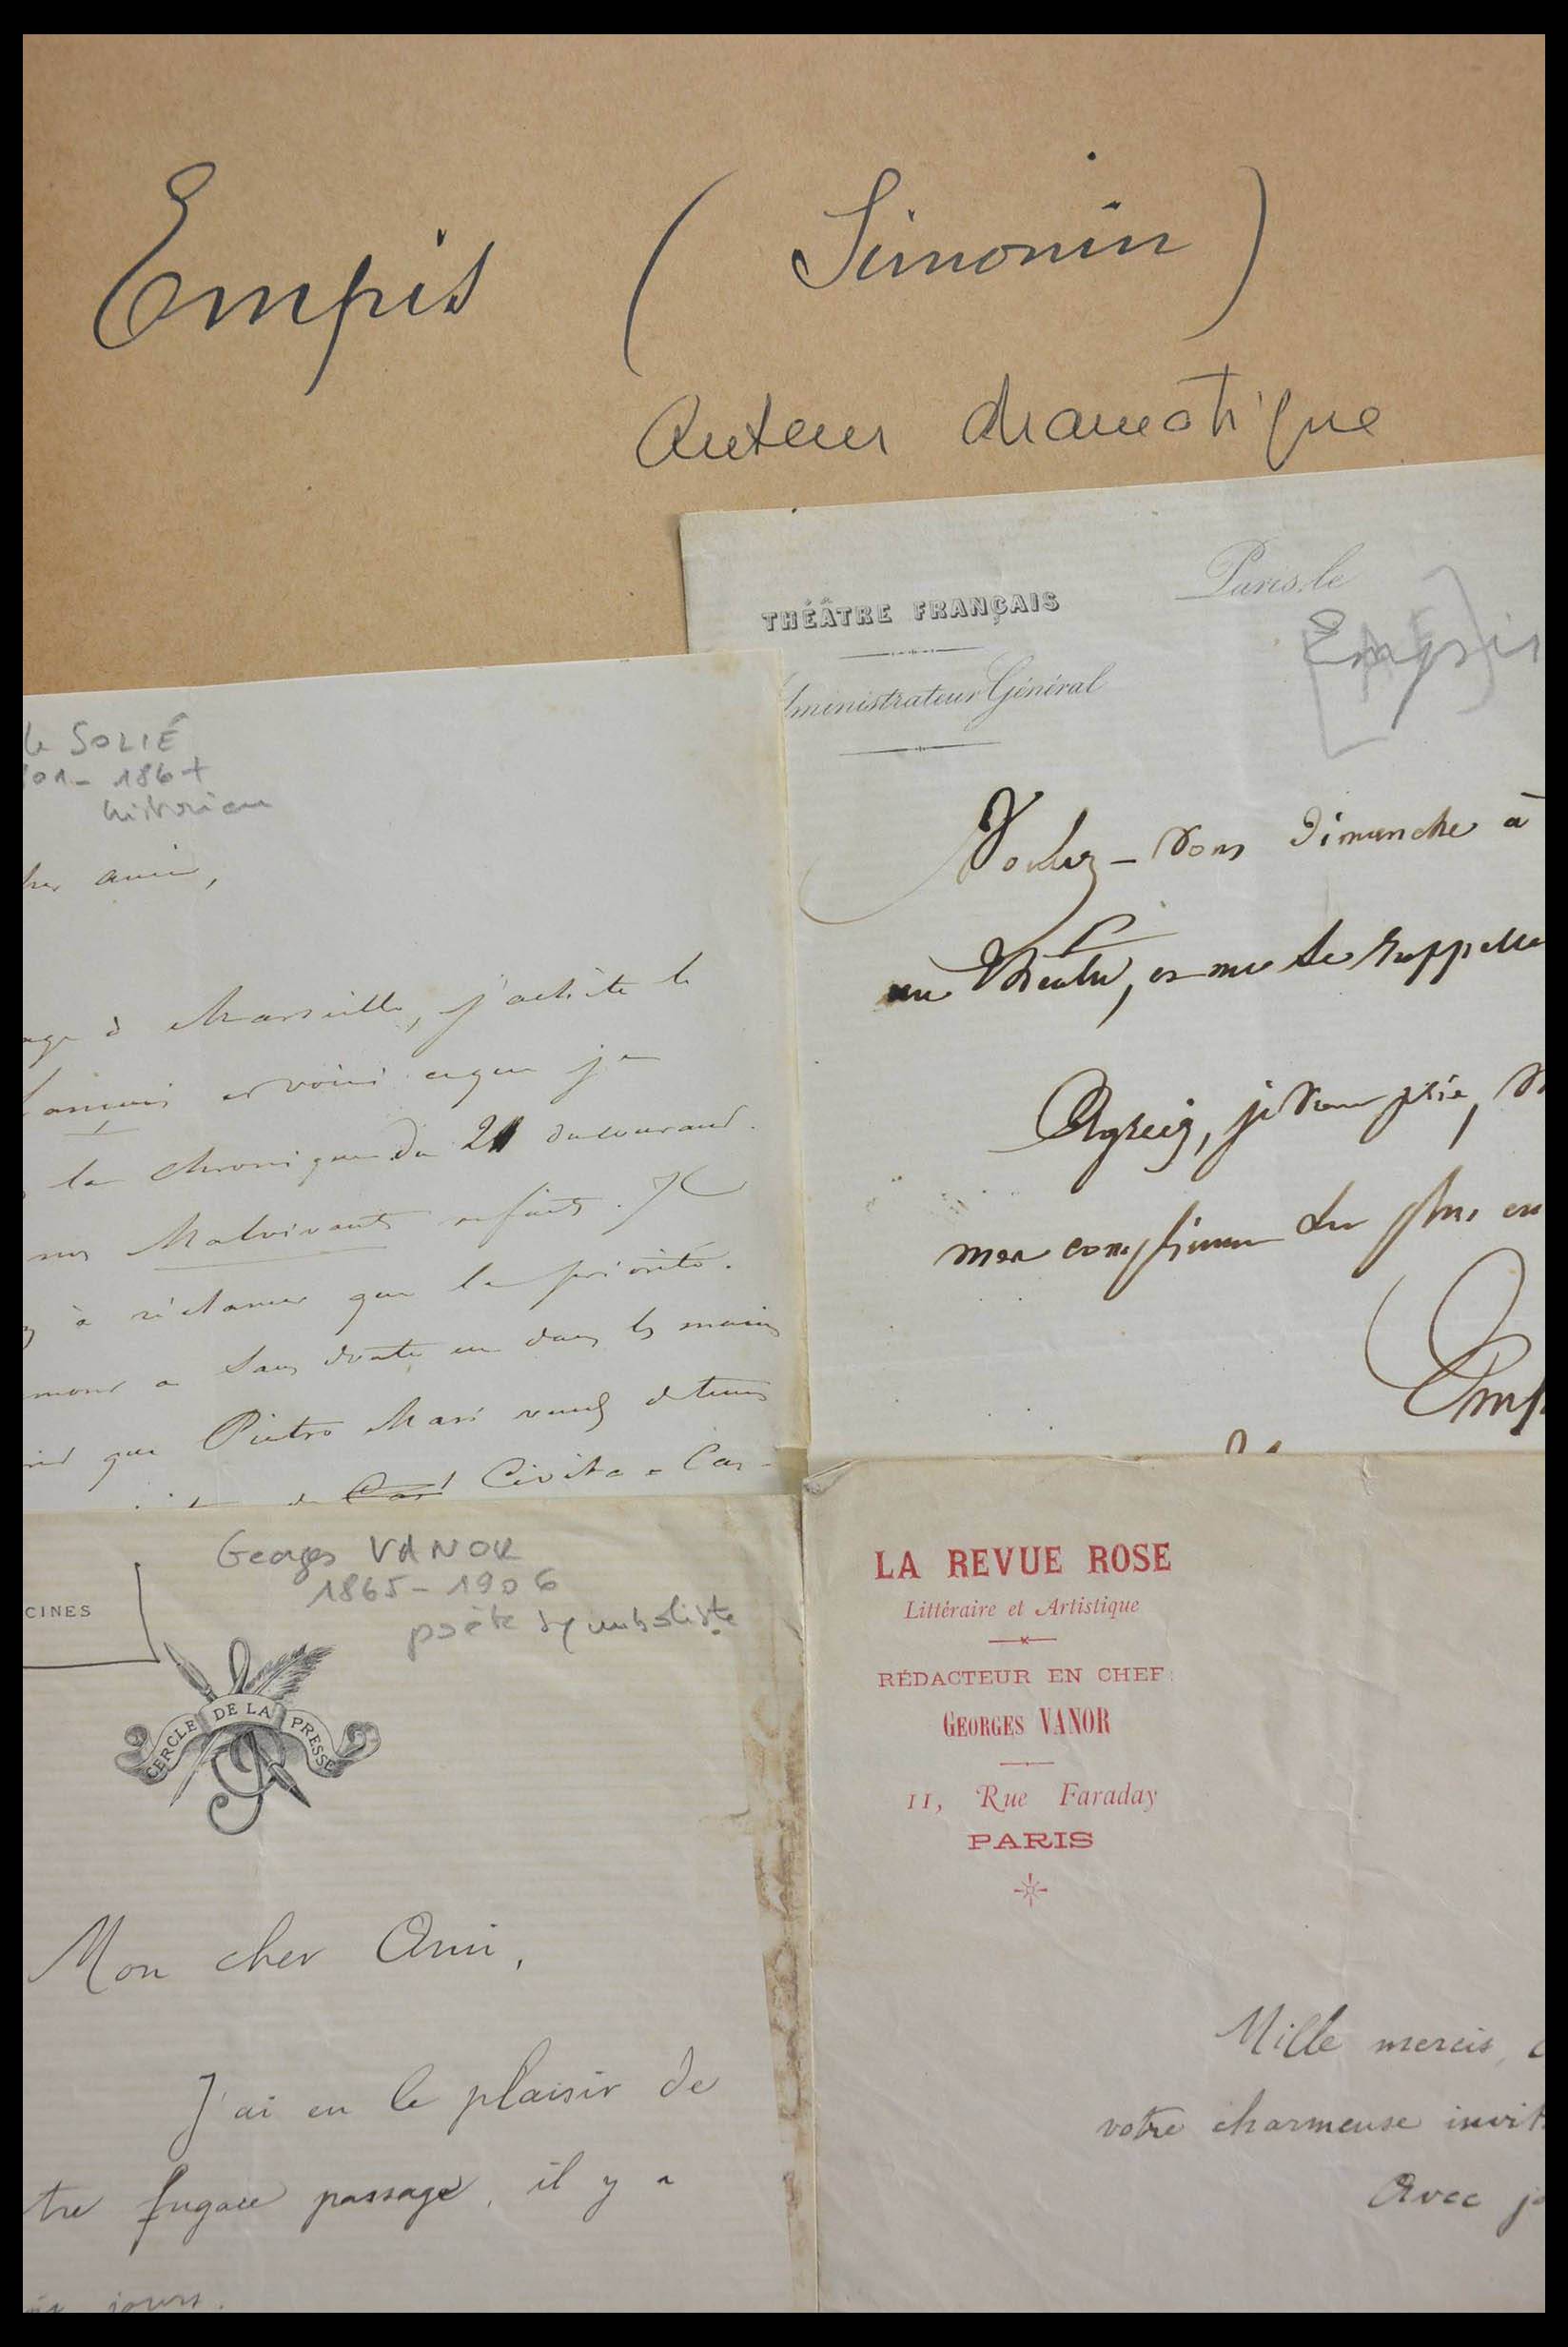 Empis ( Simonin )
Auteur dramatique
THÉÂTRE FRANÇAIS
Paris, le
Empis
Administrateur Général
Voulez-vous Dimanche à
au Théâtre, et me le rappeller
Agréez, je vous prie,
mon compliment du plus
Emp
SOLIÉ
historien
cher ami,
à Marseille, j'achète le
et voici ce que je
la chronique du 21 du courant.
Malvivants refaits. Je
à réclamer que la priorité.
sans doute eu dans les mains
que Pietro Mari
Civita-Cas-
Georges VANOR
1865-1906
poète symboliste
CINES
CERCLE DE LA PRESSE
Mon cher Ami,
J'ai eu le plaisir de
tre fugace passage, il y a
jours.
LA REVUE ROSE
Littéraire et Artistique
RÉDACTEUR EN CHEF:
GEORGES VANOR
11, Rue Faraday
PARIS
Mille mercis,
votre charmeuse invit
Avec